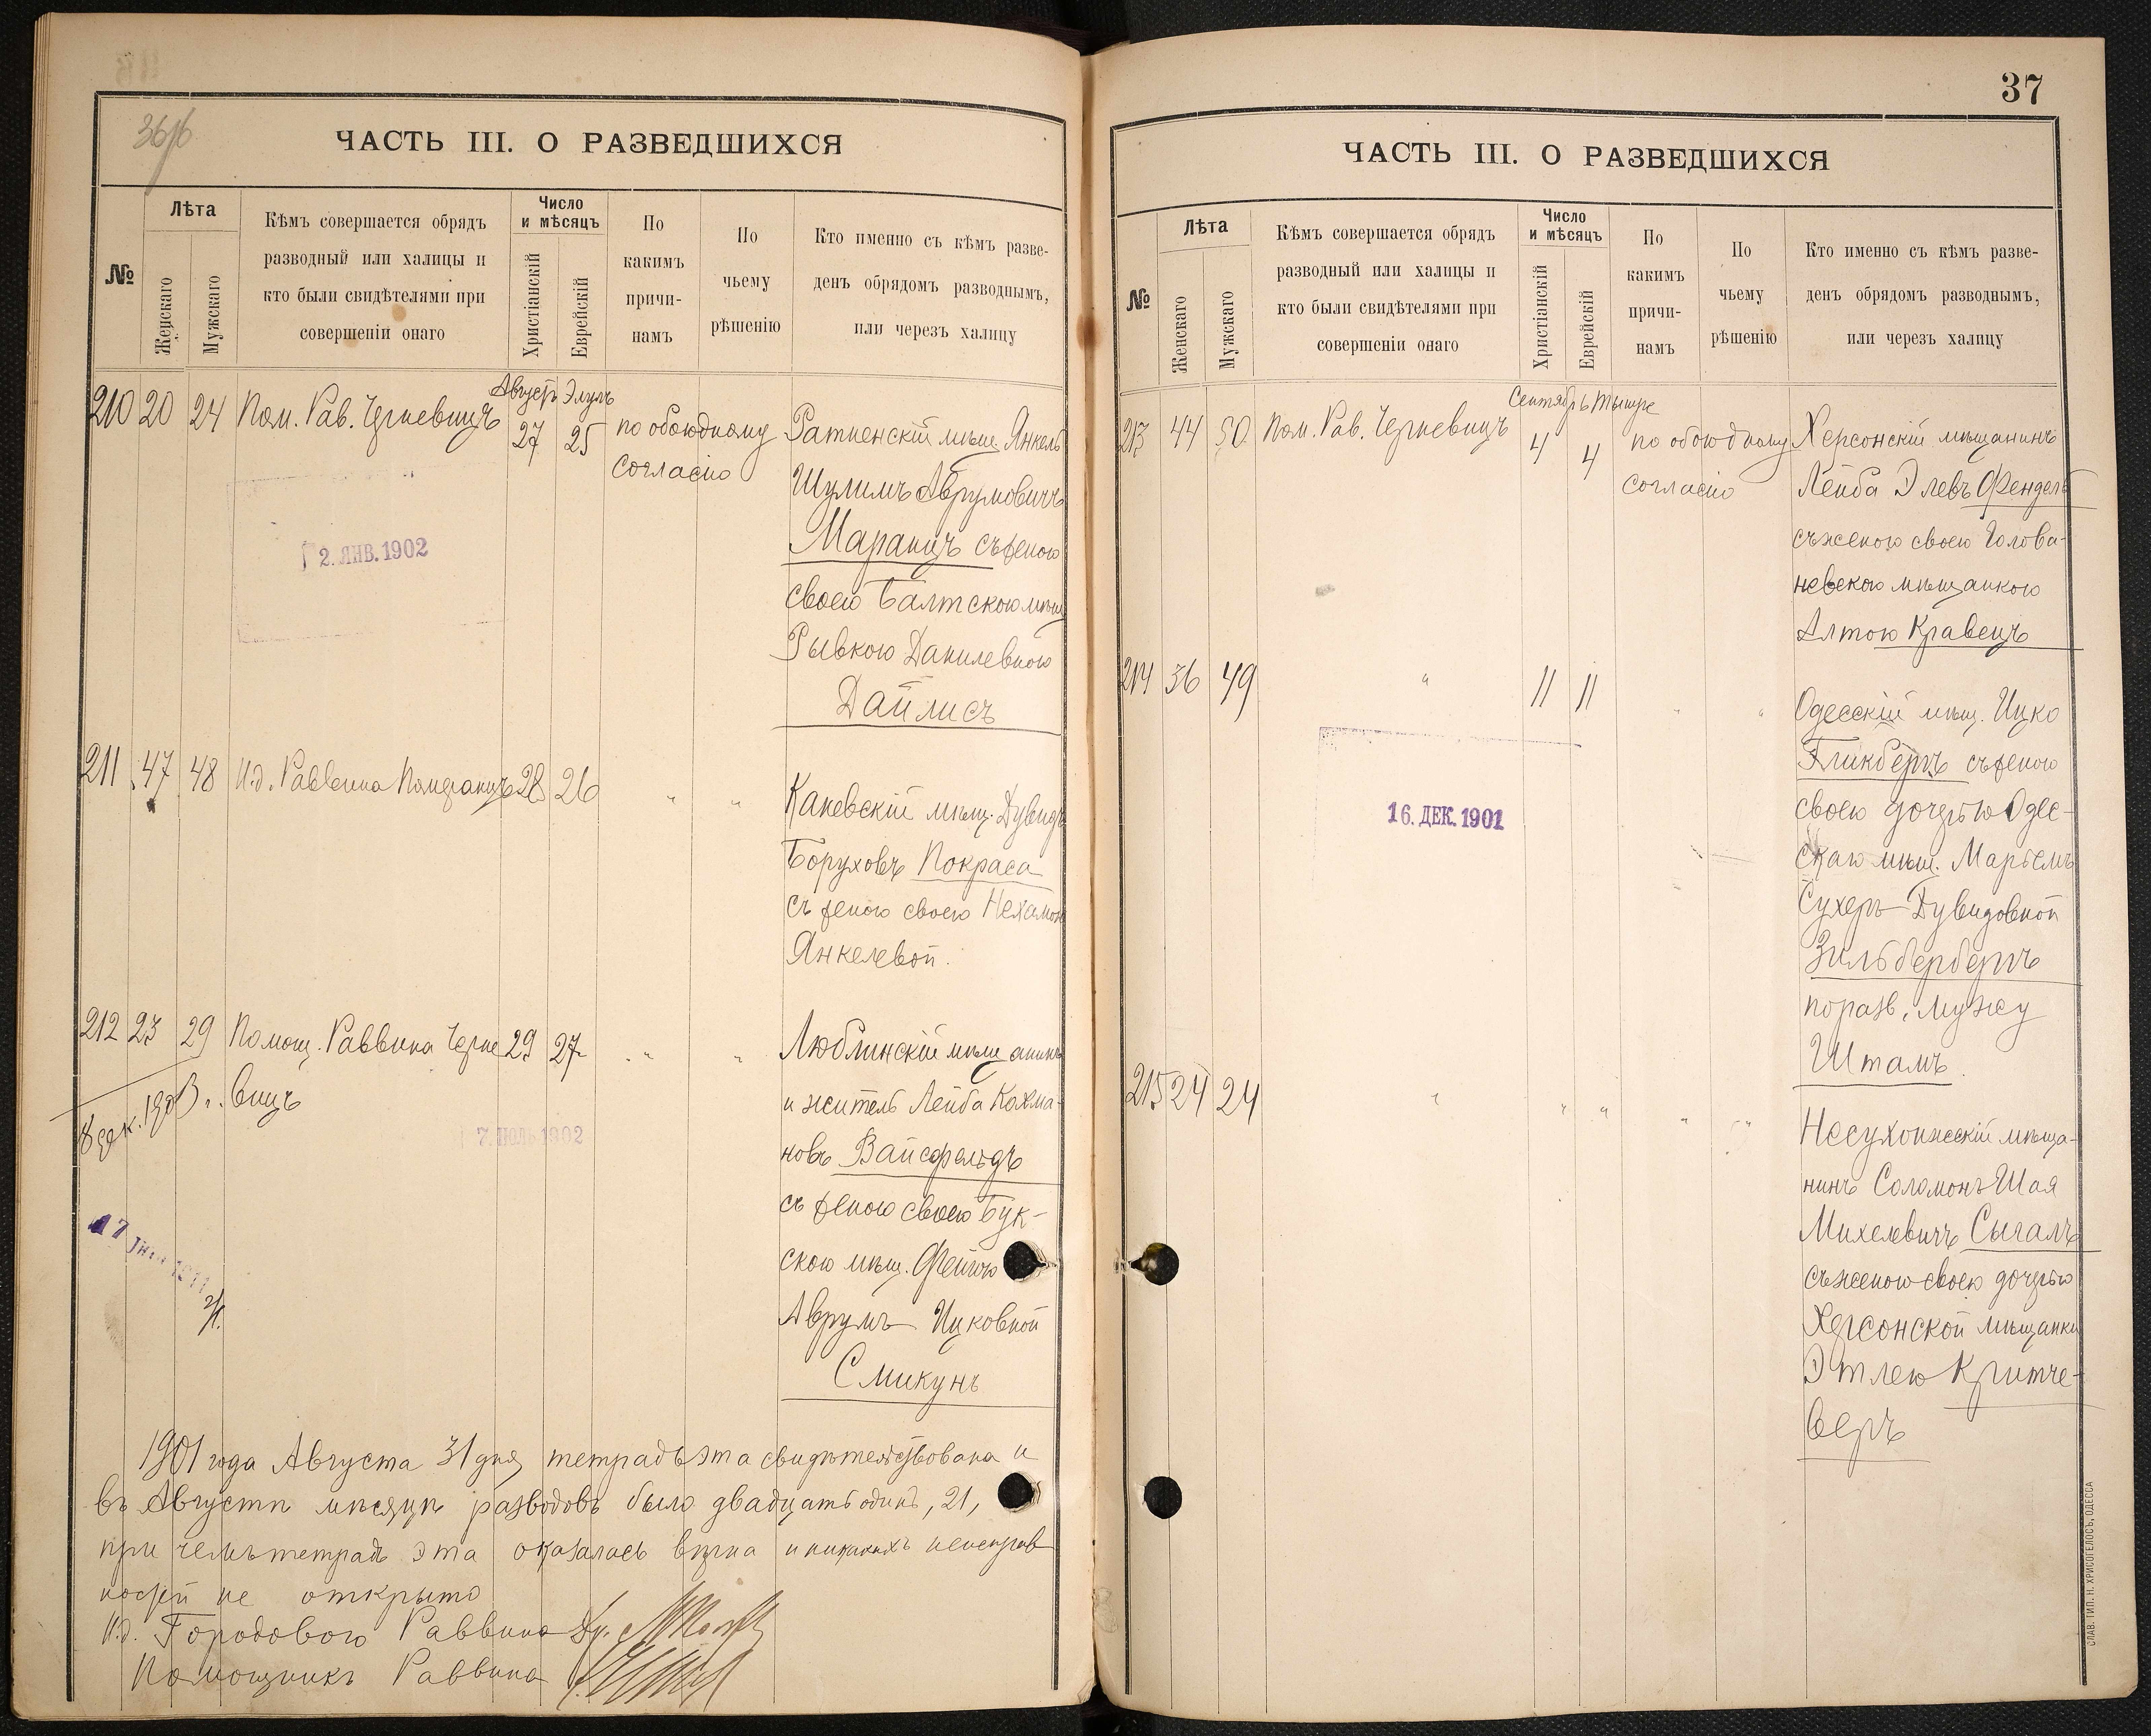 36об
ЧАСТЬ III. О РАЗВЕДШИХСЯ
№
Лѣта
Женскаго
Мужскаго
Кѣмъ совершается обрядъ
разводный или халицы и
кто были свидѣтелями при
совершеніи онаго
Число
и мѣсяцъ
Христіанскій
Еврейскій
По
какимъ
причи-
намъ
По
чьему
рѣшенію
Кто именно съ кѣмъ разве-
денъ обрядомъ разводнымъ,
или черезъ халицу
Августъ Элулъ
210 20 24 Пом. Рав. Черневицъ 27 25 по обоюдному
согласію
Ратненскій мѣщ Янкель
Шулимъ Аврумовичъ
Маранцъ съ женою
своею Балтскою мѣщ
Рывкою Данилевною
Дайлисъ
2. ЯНВ. 1902
211 47 48 И.д. Раввина Померанцъ 28 26 " "
Каневскій мѣщ. Дувидъ
Боруховъ Покраса
съ женою своею Нехамою
Янкелевой.
212 23 29 Помощ. Раввина Черне 29 27 " "
вицъ
Люблинскій мѣщанинъ
и житель Лейба Кахма-
новъ Вайсфельдъ
съ женою своею Бук-
скою мѣщ. Фейгою
Аврумъ-Ицковной
Смикунъ
7. ІЮЛЬ 1902
1901 года Августа 31 дня тетрадь эта свидѣтельствована и
въ Августѣ мѣсяцѣ разводовъ было двадцать одинъ, 21,
при чемъ тетрадь эта оказалась вѣрна и никакихъ неисправ
ностей не открыто
И.д. Городового Раввина Др.
Помощникъ Раввина
37
ЧАСТЬ III. О РАЗВЕДШИХСЯ
№
Лѣта
Женскаго
Мужскаго
Кѣмъ совершается обрядъ
разводный или халицы и
кто были свидѣтелями при
совершеніи онаго
Число
и мѣсяцъ
Христіанскій
Еврейскій
По
какимъ
причи-
намъ
По
чьему
рѣшенію
Кто именно съ кѣмъ разве-
денъ обрядомъ разводнымъ,
или черезъ халицу
Сентябрь Тышре
213 44 50 Пом. Рав. Черневицъ 4 4 по обоюдному
согласію
Херсонскій мѣщанинъ
Лейба Элевъ Фендель
съ женою своею Голова-
невскою мѣщанкою
Алтою Кравецъ
214 36 49 " 11 11 " "
Одесскій мѣщ. Ицко
Гликбергъ съ женою
своею дочерью Одес-
скаго мѣщ. Марьемъ
Сухеръ-Дувидовной
Зильбербергъ
по разв. мужу
Штамъ.
16. ДЕК. 1901
215 24 24 " " " " "
Несухоижескій мѣща-
нинъ Соломонъ Шая
Михелевичъ Сыгалъ
съ женою своею дочерью
Херсонской мѣщанки
Этлею Критче-
веръ
СЛАВ. ТИП. Н. ХРИСОГЕЛОСЪ, ОДЕССА